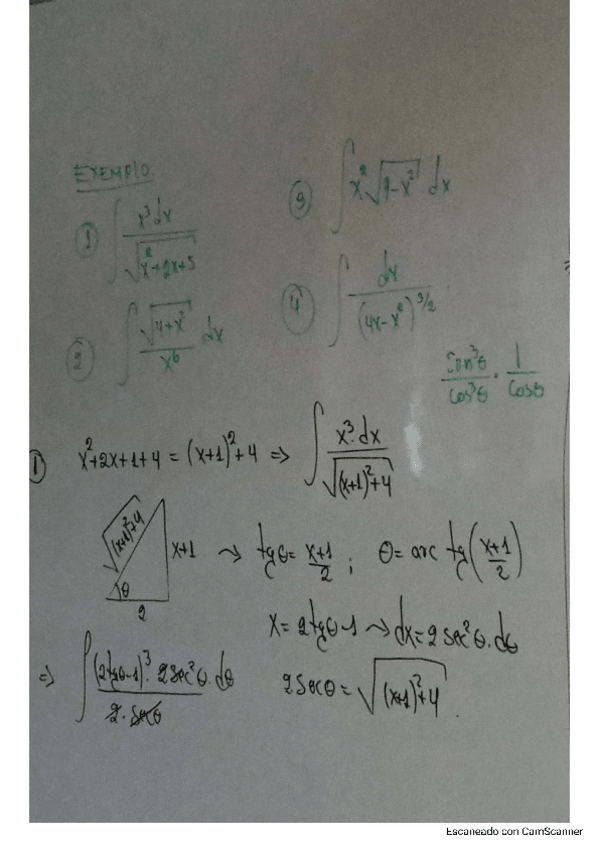 EXEMPLO.
① ∫ x³dx / √(x²+2x+5)
② ∫ √(4+x²) / x⁶ dx
③ ∫ x²√(9-x²) dx
④ ∫ dx / (4x-x²)^(3/2)
Sen³θ / Cos³θ · 1 / Cosθ
① x²+2x+1+4 = (x+1)²+4 ⇒ ∫ x³·dx / √((x+1)²+4)
√((x+1)²+4) x+1 θ 2
⤳ tgθ = (x+1)/2 ; θ = arc tg((x+1)/2)
x = 2tgθ-1 ⤳ dx = 2sec²θ.dθ
⇒ ∫ (2tgθ-1)³·2sec²θ.dθ / 2·secθ
2secθ = √((x+1)²+4).
Escaneado con CamScanner